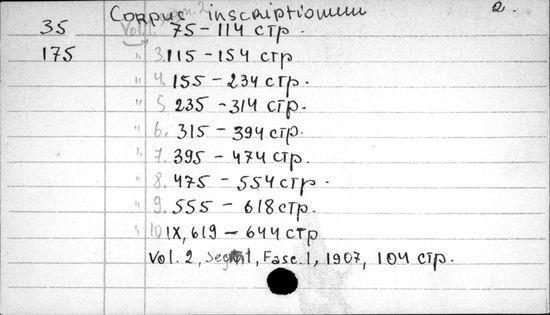 Corpus inscriptionum 2.
35 Vol. 75 – 114 стр.
175 " 3. 115 – 154 стр
" 4. 155 – 234 стр.
" 5 235 – 314 стр.
" 6. 315 – 394 стр.
" 7. 395 – 474 стр.
" 8. 475 – 554 стр.
" 9. 555 – 618 стр.
" 10 IX, 619 – 644 стр
Vol. 2, Fasc. 1, 1907, 104 стр.